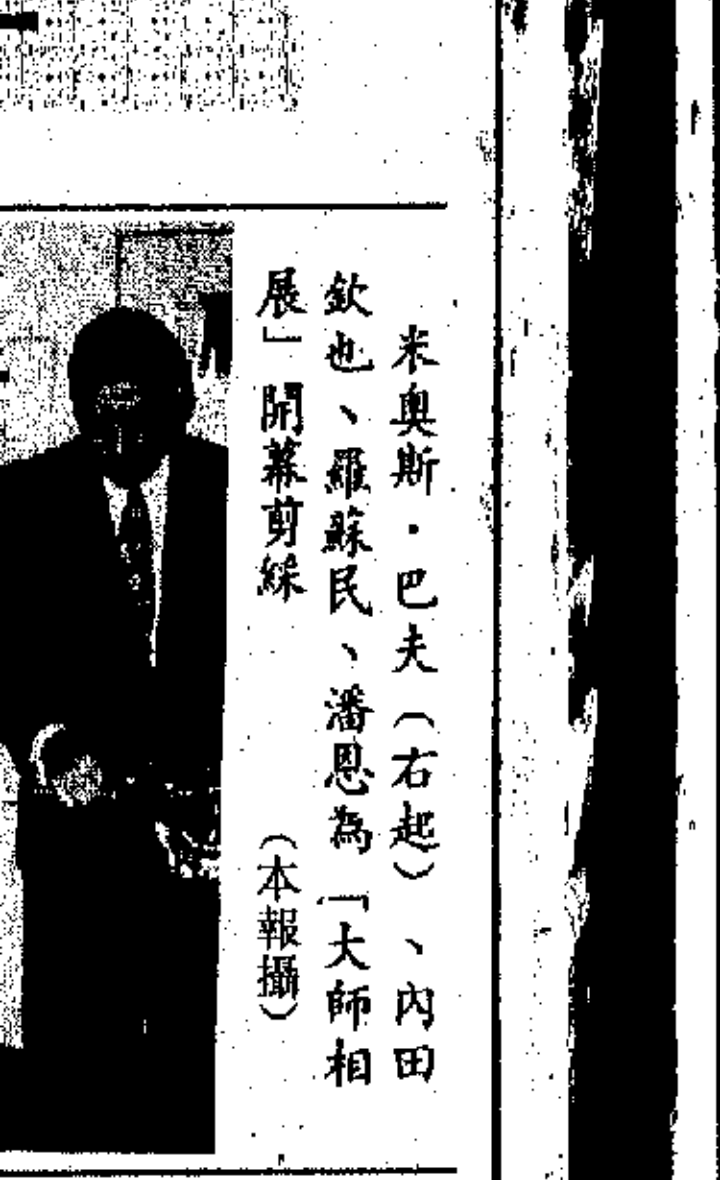 米奧斯・巴夫（右起）、內田
欽也、羅蘇民、潘恩為「大師相
展」開幕剪綵　（本報攝）